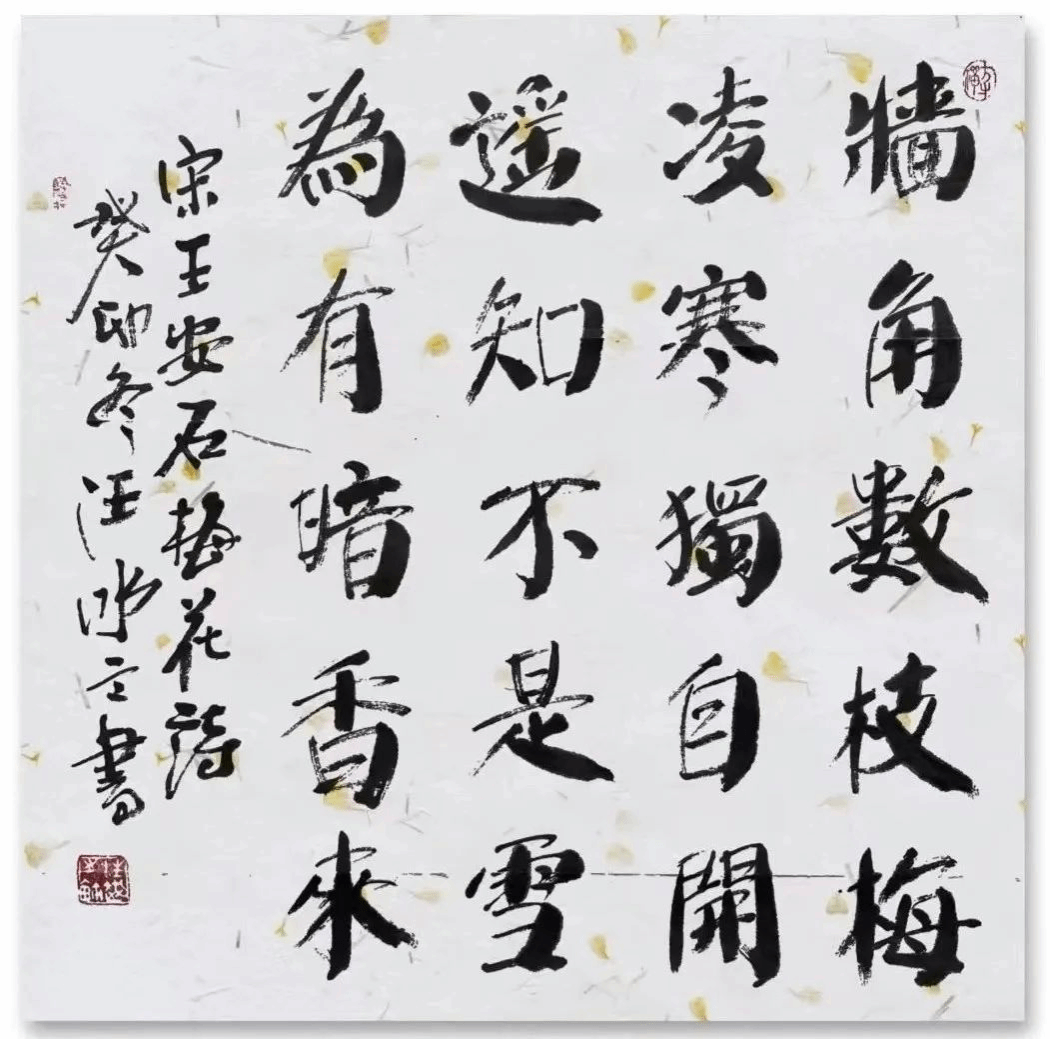 牆角數枝梅
凌寒獨自開
遥知不是雪
為有暗香來
宋王安石梅花詩
癸卯冬汪
書